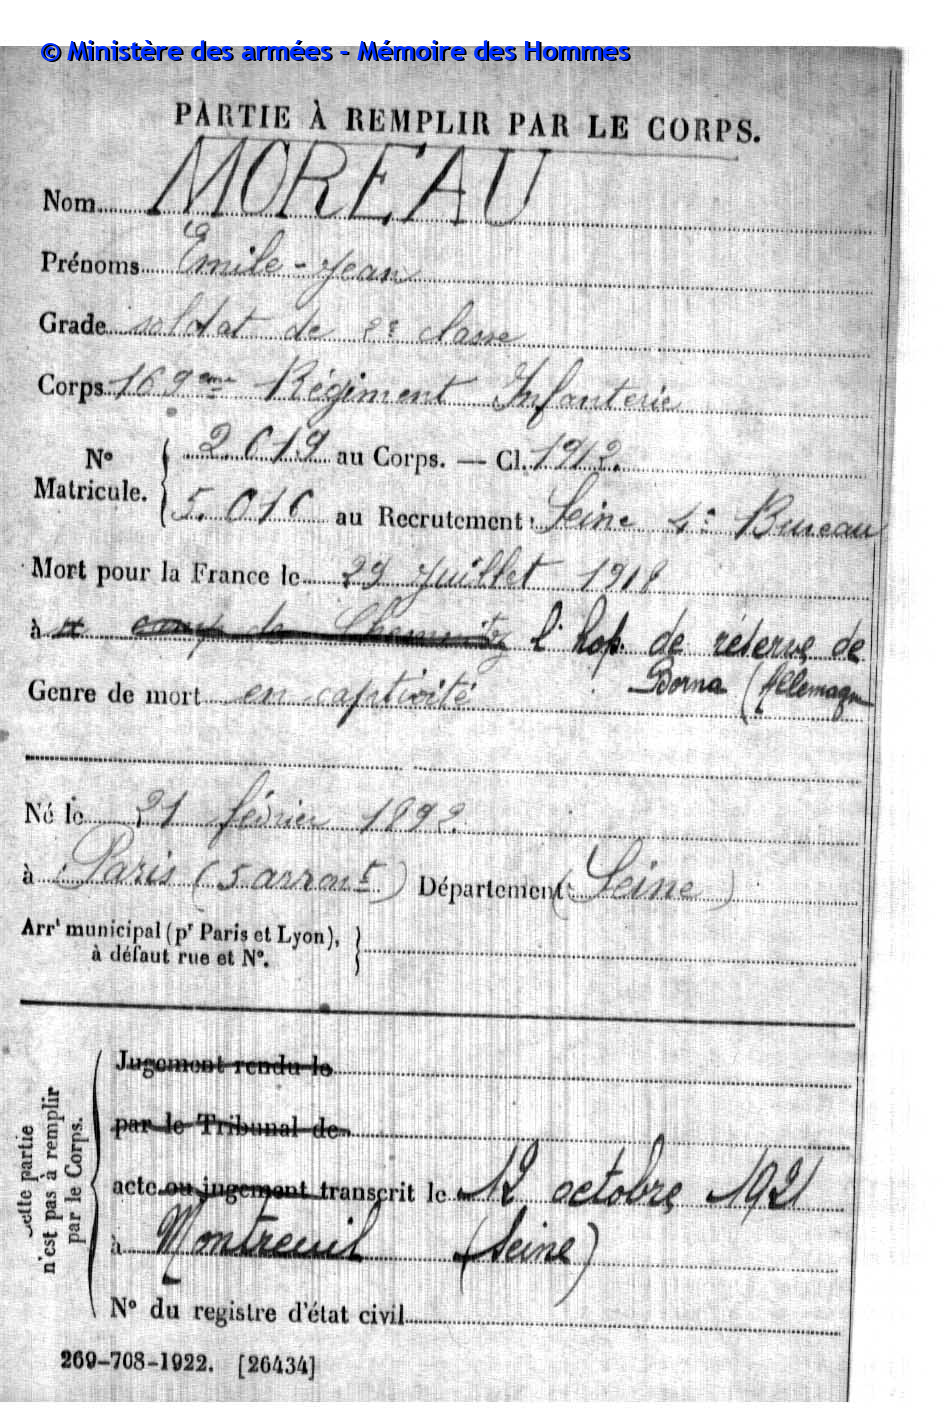 © Ministère des armées - Mémoire des Hommes
PARTIE À REMPLIR PAR LE CORPS.
Nom MOREAU
Prénoms Émile - Jean
Grade soldat de 2e classe
Corps 169ème Régiment Infanterie
No Matricule. { 2.619 au Corps. — Cl. 1912.
5.016 au Recrutement Seine 4e Bureau
Mort pour la France le 29 Juillet 1918
à camp de Chemnitz l'hop. de réserve de
Borna (Allemagne
Genre de mort en captivité
Né le 21 février 1892
à Paris (5 arront) Département (Seine)
Arrt municipal (pr Paris et Lyon),
à défaut rue et No.
Cette partie n'est pas à remplir par le Corps.
Jugement rendu le
par le Tribunal de
acte ou jugement transcrit le 12 octobre 1921
à Montreuil (Seine)
No du registre d'état civil
269-708-1922. [26434]